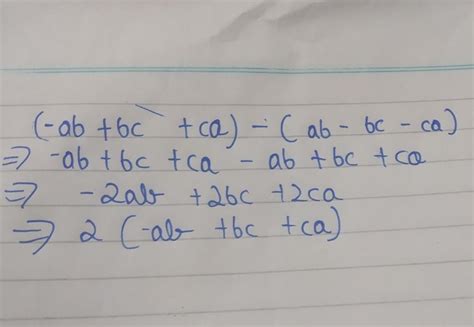 (-ab + bc + ca) - (ab - bc - ca)
⇒ -ab + bc + ca - ab + bc + ca
⇒ -2ab + 2bc + 2ca
⇒ 2 (-ab + bc + ca)